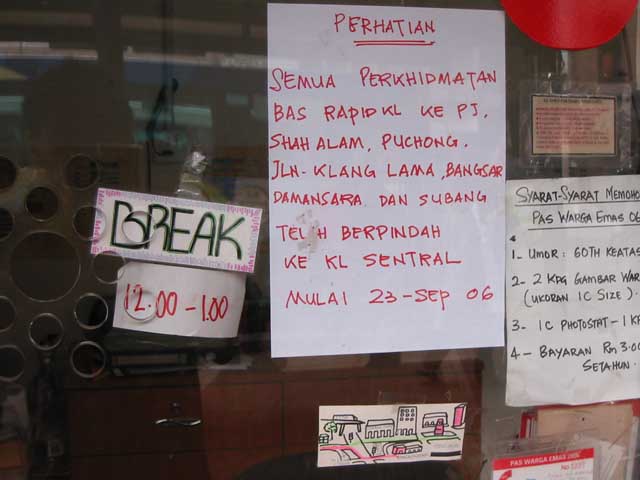 PERHATIAN
SEMUA PERKHIDMATAN
BAS RAPIDKL KE PJ,
SHAH ALAM, PUCHONG.
JLN-KLANG LAMA, BANGSAR
DAMANSARA DAN SUBANG
TELAH BERPINDAH
KE KL SENTRAL
MULAI 23-SEP 06
BREAK
12.00-1.00
SYARAT-SYARAT MEMOHO
PAS WARGA EMAS 06
1- UMUR: 60TH KEATAS
2- 2 KPG GAMBAR WAR
(UKURAN IC SIZE).
3- IC PHOTOSTAT - 1 KP
4- BAYARAN RM 3.00
SETAHUN.
PAS WARGA EMAS 2006